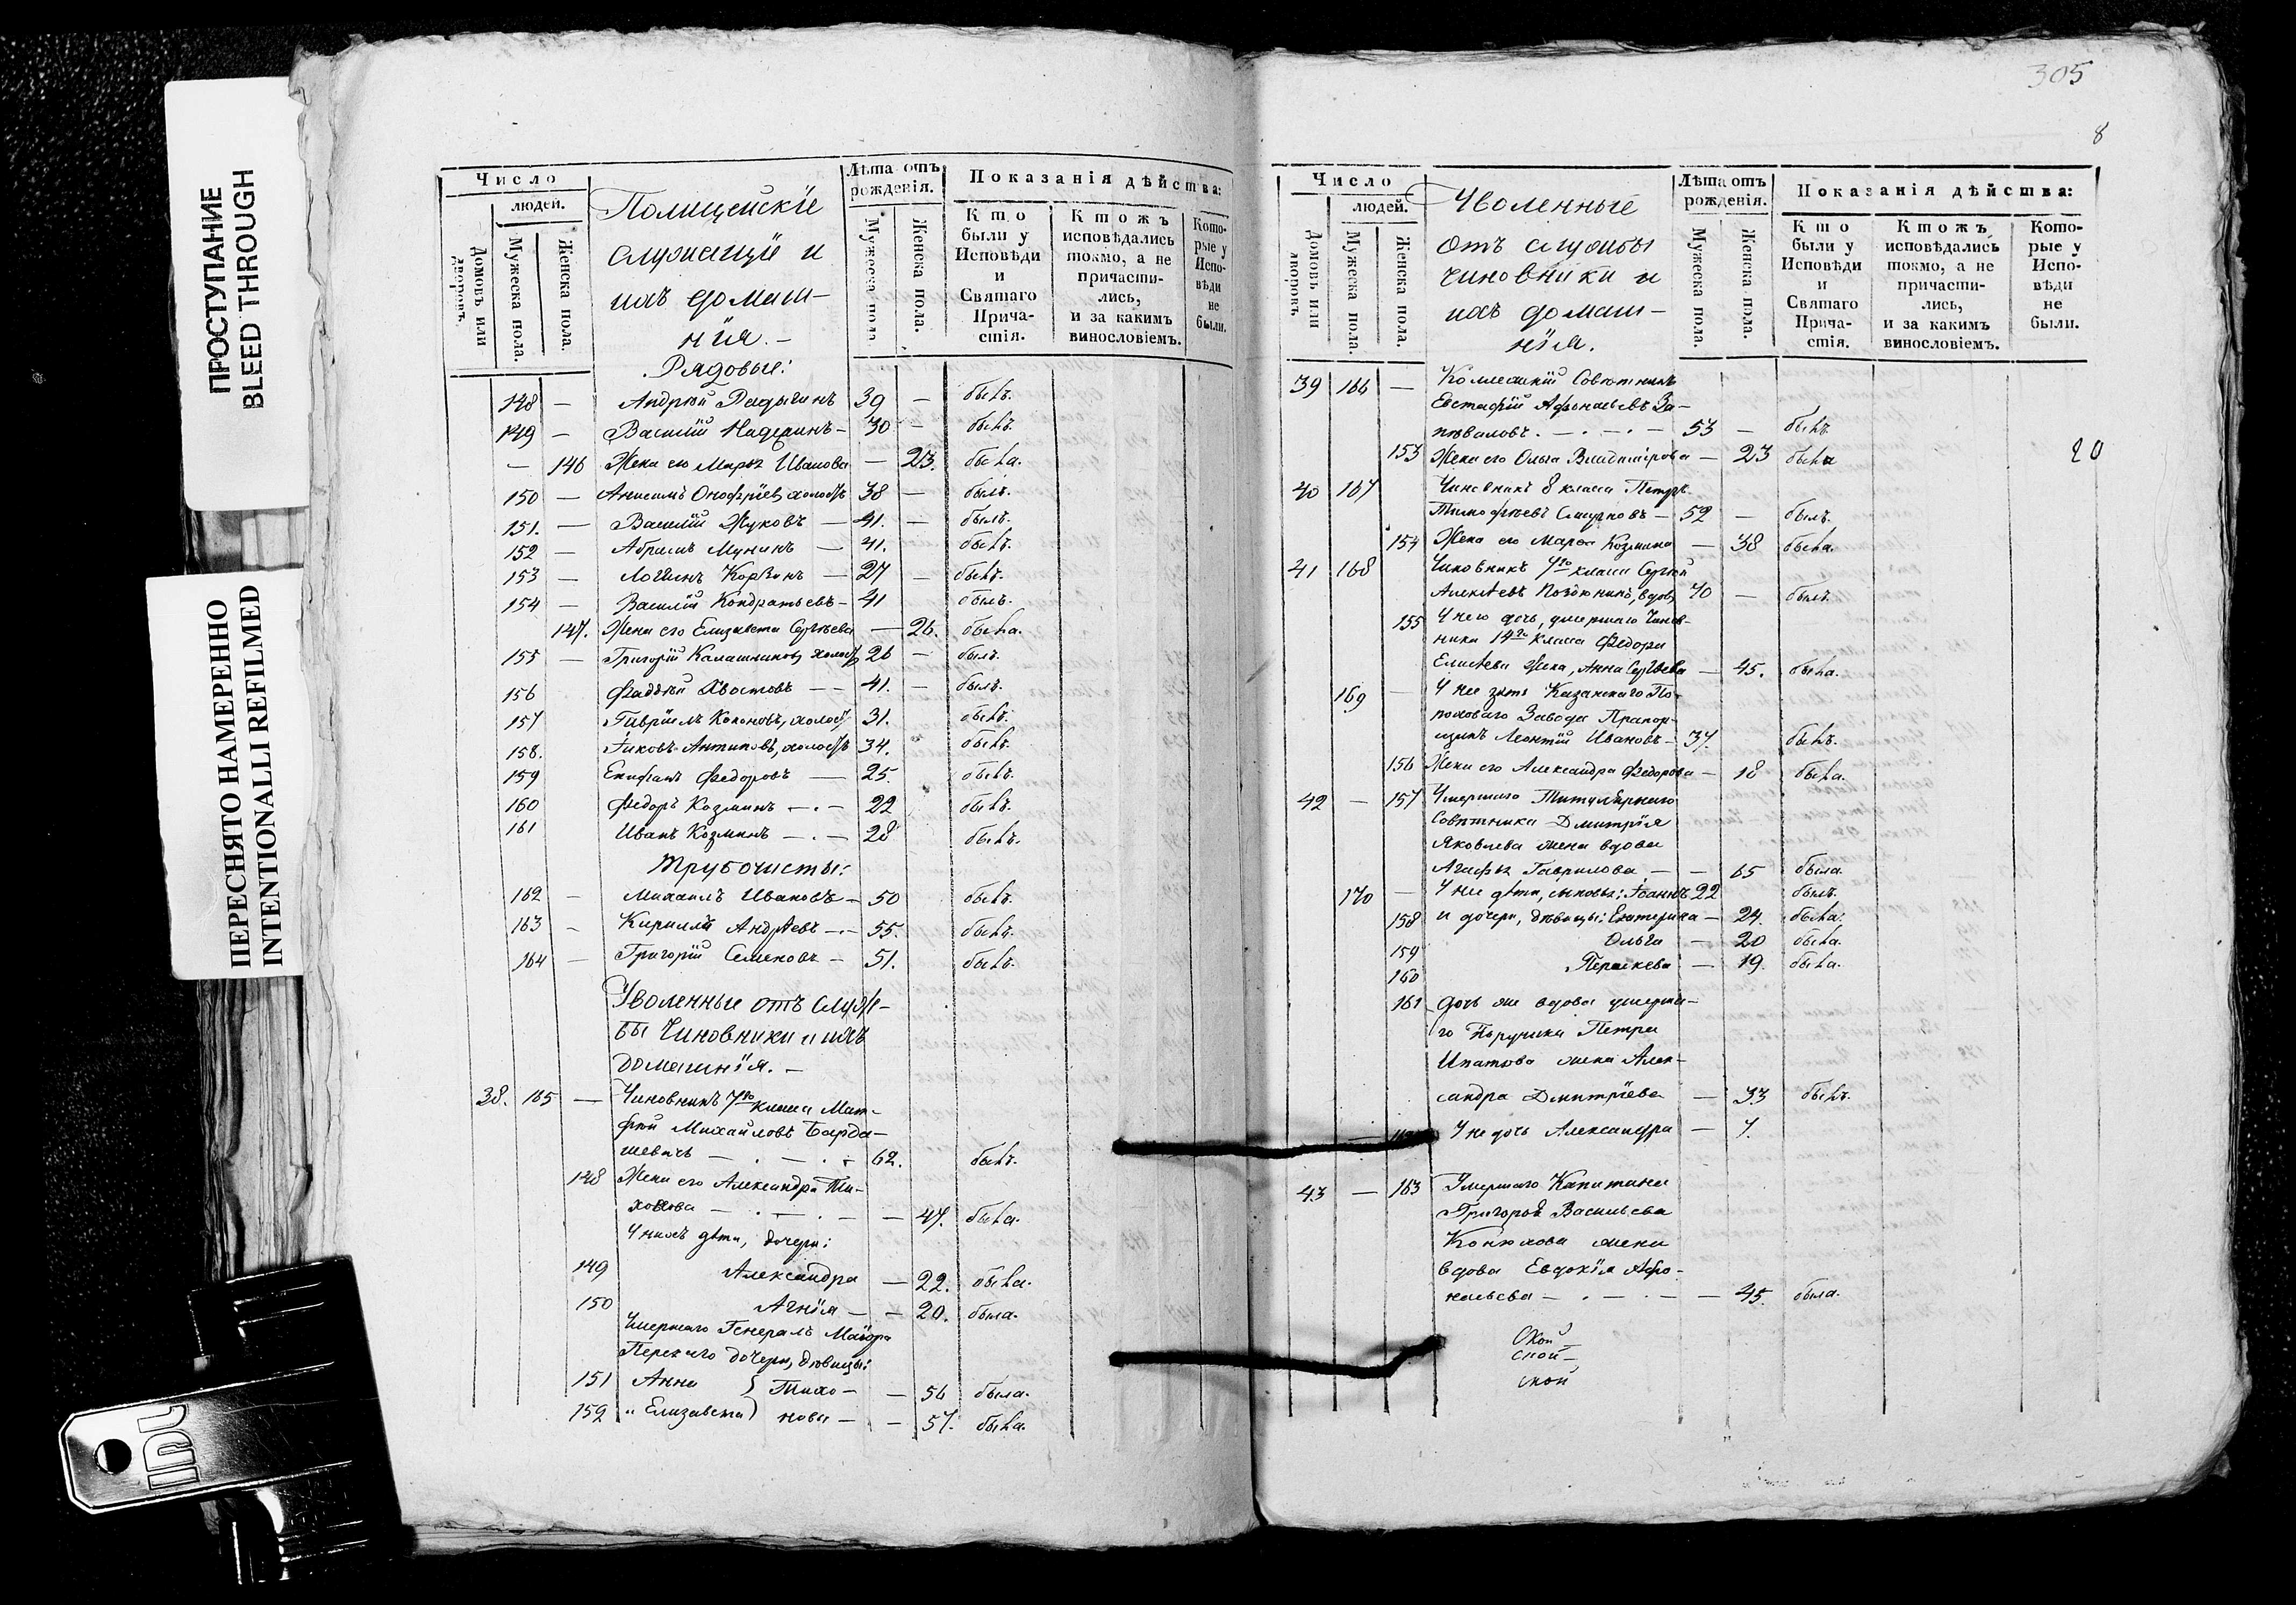 ПРОСТУПАНИЕ
BLEED THROUGH
ПЕРЕСНЯТО НАМЕРЕННО
INTENTIONALLI REFILMED
Число
людей.
Домовъ или дворовъ.
Мужеска пола.
Женска пола.
Полицейскіе
служащіе и
ихъ домаш-
нія. -
Лѣта отъ рожденія.
Мужеска пола
Женска пола.
Показанія дѣйства:
Кто были у Исповѣди и Святаго Прича-стія.
Ктожъ исповѣдались токмо, а не причасти-лись, и за какимъ винословіемъ.
Кото-рые у Испо-вѣди не были.
Рядовые:
148 — Андрей 39 — былъ.
149 — Василій 30 — былъ.
— 146 Жена его Марѳа Иванова — 23. была.
150 — Анисимъ Онофріев, холостъ 38 — былъ.
151. — Василій Жуковъ — 41. — былъ.
152 — Абрамъ Мунинъ — 41. былъ.
153 — Логинъ — 27 — былъ.
154 — Василій Кондратьевъ - 41 былъ.
147. Жена его Елизавета Сергѣева — 26. была.
155 — Григорій Калашников, холостъ 26 — былъ.
156 Фаддѣй Хвостовъ — — 41. — былъ.
157 Гавріилъ Кононовъ, холостъ 31. былъ.
158. Іаковъ Антиповъ, холостъ 34. былъ.
159 Епифанъ Федоровъ — 25. былъ.
160 Федоръ Козминъ — . — 22 былъ.
161 Иванъ Козминъ — . — 28 былъ.
Трубочисты:
162 — Михаилъ Ивановъ — 50 былъ.
163 - Кириллъ Андрѣевъ — . — 55. былъ.
164 — Григорій Семеновъ — 51. былъ.
Уволенные отъ служ-
бы Чиновники и ихъ
домашнія. —
38. 165 — Чиновникъ 7го класса Мат-
фей Михайловъ Барда-
шевичъ — . — . 62. былъ.
148 Жена его Александра Ти-
хонова — . — . — — 47. была.
У нихъ дѣти, дочери:
149 Александра — 22. была.
150 Агнія — — 20. была.
Умершаго Генералъ Маіора
дочери, дѣвицы:
151 Анна } Тихо- — 56 была.
152 Елизавета } нова — — 57. была.
305
8
Число
людей.
Домовъ или дворовъ.
Мужеска пола.
Женска пола.
Уволенные
отъ службы
чиновники и
ихъ домаш-
нія.
Лѣта отъ рожденія.
Мужеска пола.
Женска пола.
Показанія дѣйства:
Кто были у Исповѣди и Святаго Прича-стія.
Ктожъ исповѣдались токмо, а не причасти-лись, и за какимъ винословіемъ.
Кото-рые у Испо-вѣди не были.
39 166 — Коллежскій Совѣтникъ
Евстафій Афонасьевъ За-
пѣваловъ. — . — . — 53 — былъ
153 Жена его Ольга Владимірова — 23 была
20
40 167 Чиновникъ 8 класса Петръ
Тимофѣевъ Смирновъ — 52 — былъ.
154 Жена его Марѳа Козмина — 38 была.
41 168 Чиновникъ 7го класса Сергей
Алексѣевъ , вдов, 70 — былъ.
155 У него дочь, умершаго Чинов-
ника 14го класса Федора
Елисѣева жена, Анна Сергѣева — 45. была.
169 — У нее зять Казанскаго По-
роховаго Завода Прапор-
щикъ Леонтій Ивановъ — 37. былъ.
156 Жена его Александра Федорова — 18 была.
42 — 157 Умершаго Титулярнаго
Совѣтника Дмитрія
Яковлева жена вдова
Агафья Гаврилова — — 65 была
170 — У нее дѣти, сыновья: Іоаннъ 22 былъ.
158 и дочери, дѣвицы: Екатерина — 24. была.
159 Ольга — 20 была.
160 Параскева — 19. была.
161 Дочь же вдова умерша-
го Поручика Петра
Ипатова жена Алек-
сандра Дмитріева — 33 былъ.
У не дочь Александра — 7.
43 — 163 Умершаго Капитана
Григорья Васильева
Конюхова жена
вдова Евдокія Афо-
насьева — . — . — — 45. была.
ской